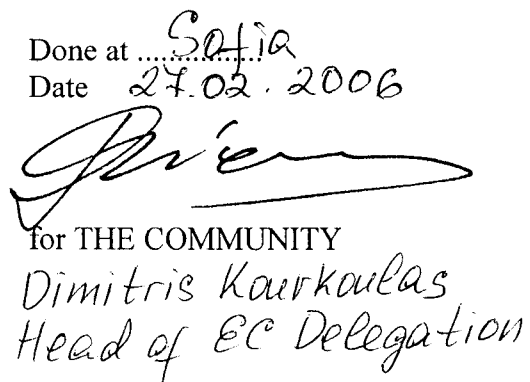 Done at ................ Sofia
Date 27.02.2006
for THE COMMUNITY
Dimitris Kourkoulas
Head of EC Delegation